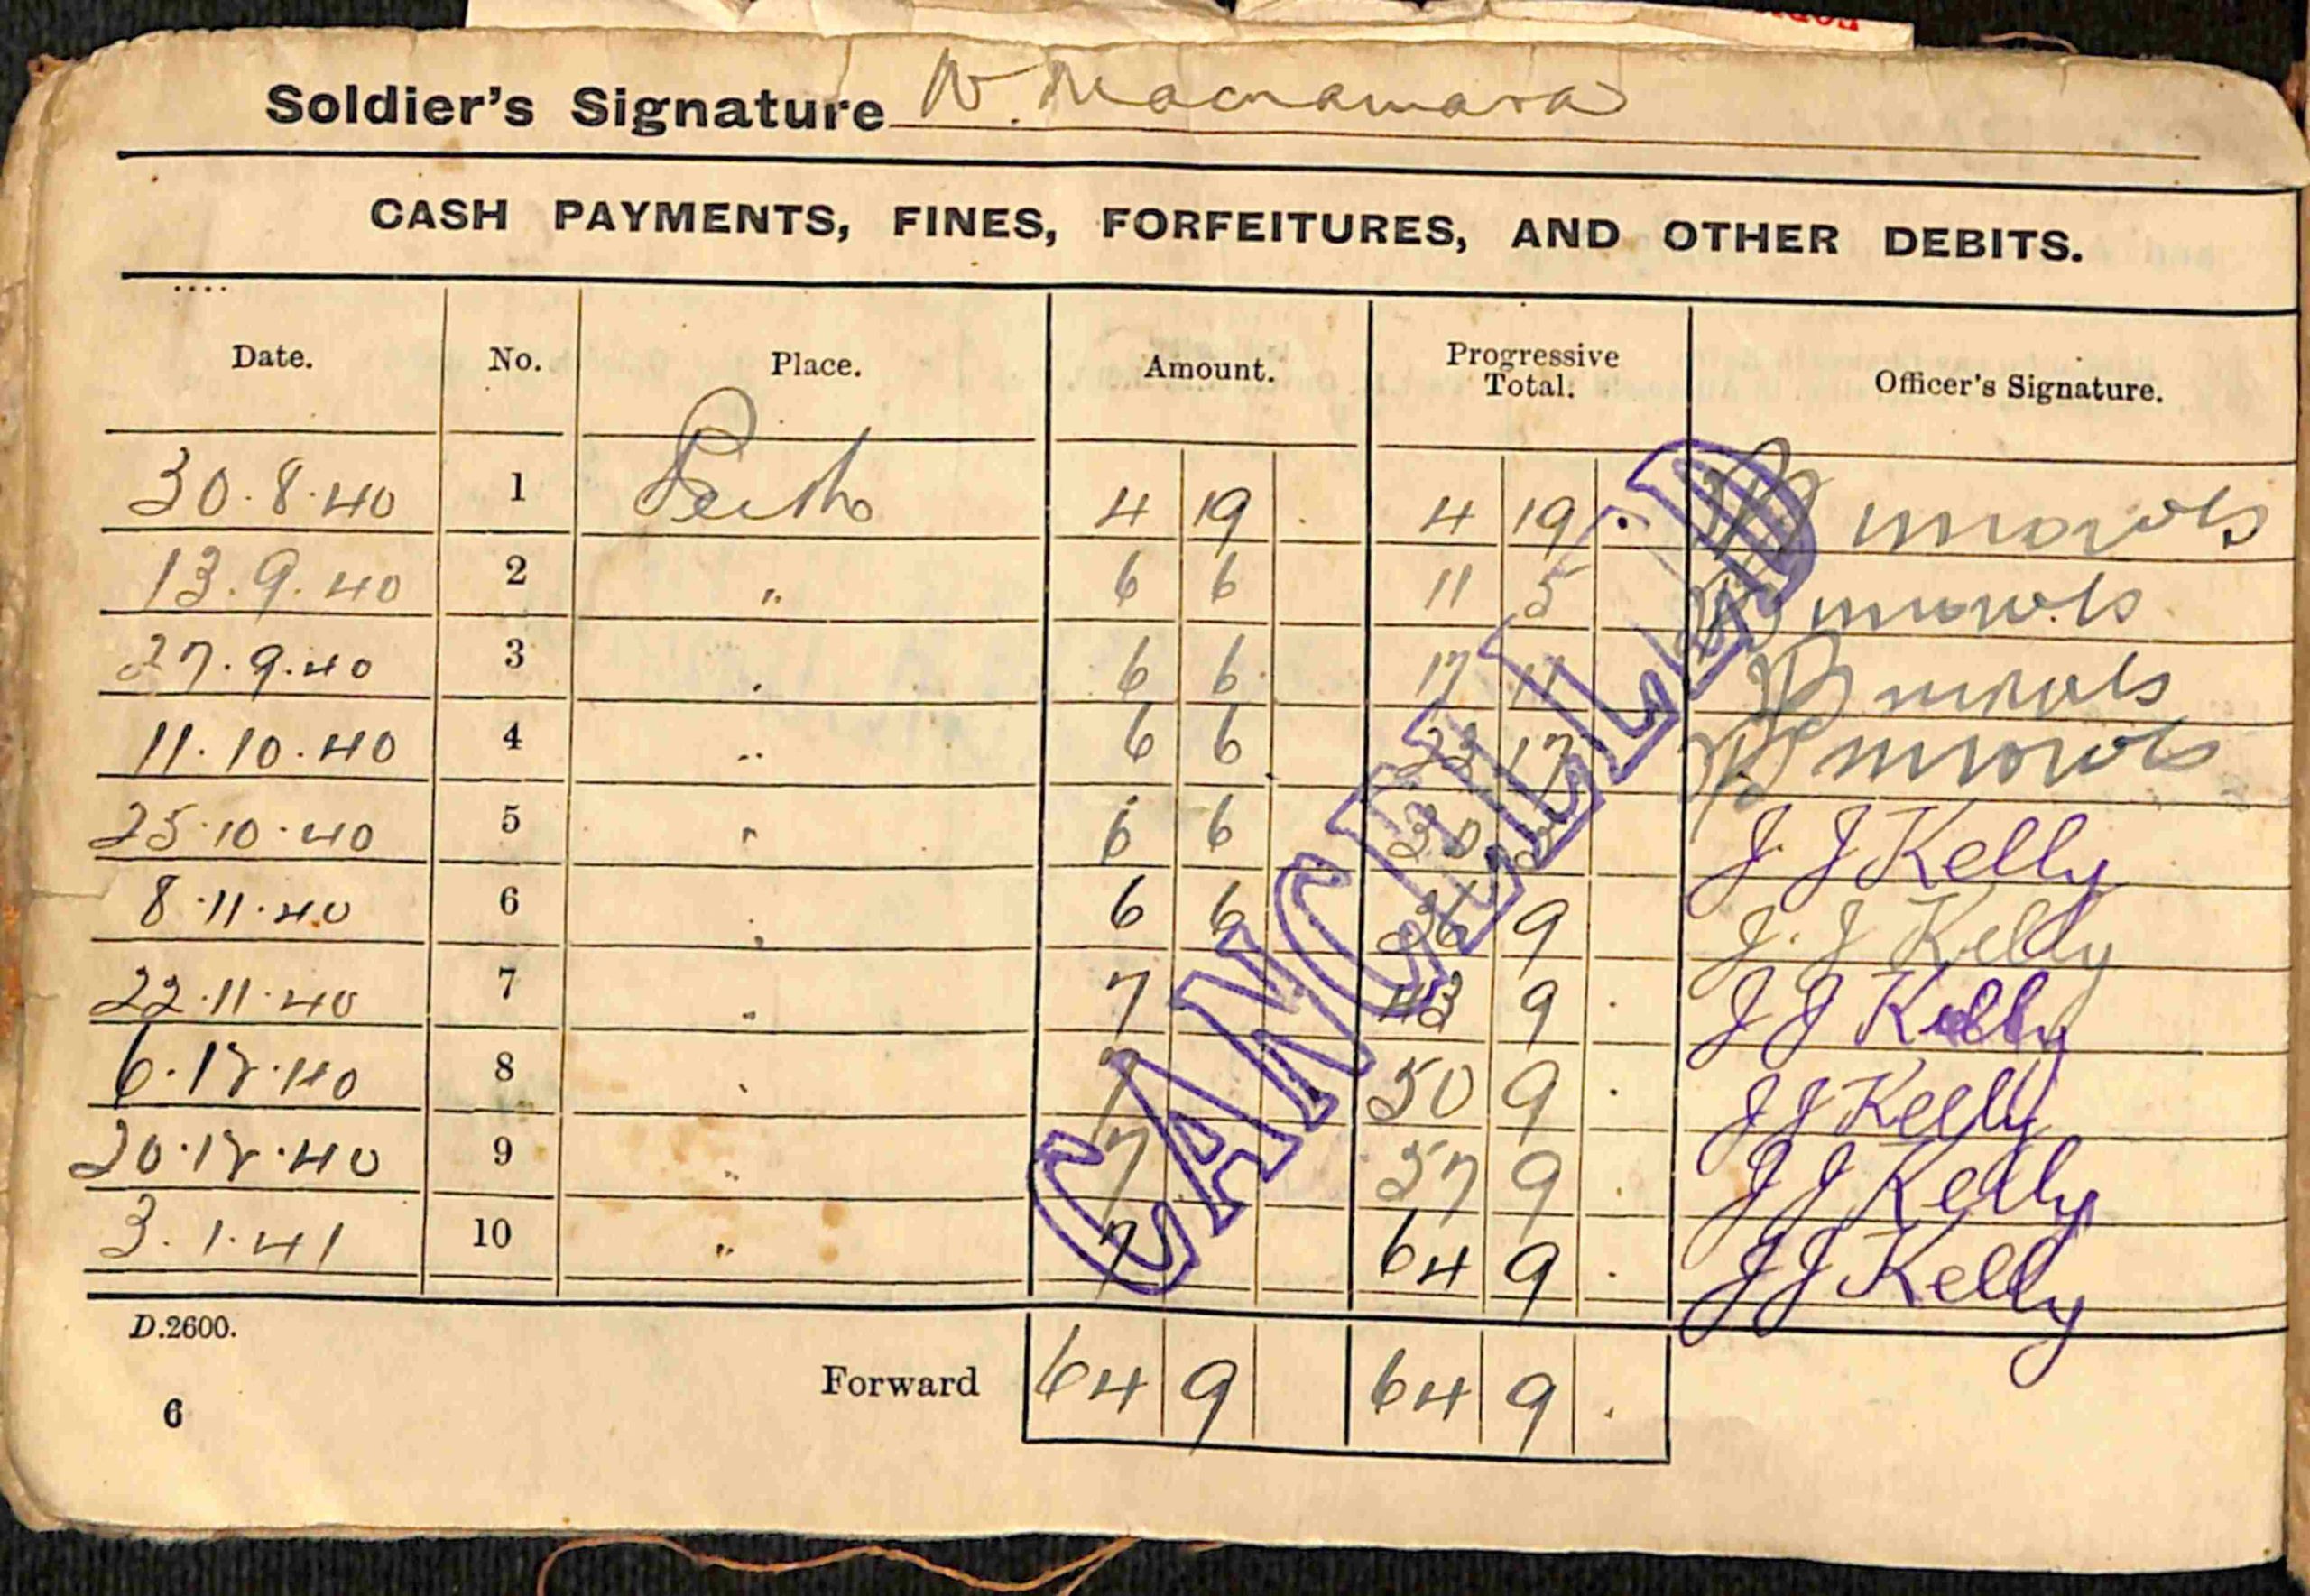 Soldier's Signature W. Macnamara
CASH PAYMENTS, FINES, FORFEITURES, AND OTHER DEBITS.
Date. No. Place. Amount. Progressive Total. Officer's Signature.
30.8.40 1 Perth 4 19 . 4 19 .
13.9.40 2 " 6 6 11 5
27.9.40 3 6 6 17 11
11.10.40 4 " 6 6 23 17
25.10.40 5 " 6 6 30 3 J J Kelly
8.11.40 6 " 6 6 36 9 J. J Kelly
22.11.40 7 " 7 43 9 . J J Kelly
6.12.40 8 " 7 50 9 . J J Kelly
20.12.40 9 " 7 57 9 . J J Kelly
3.1.41 10 " 7 64 9 . J J Kelly
CANCELLED
D.2600.
Forward 64 9 64 9 .
6